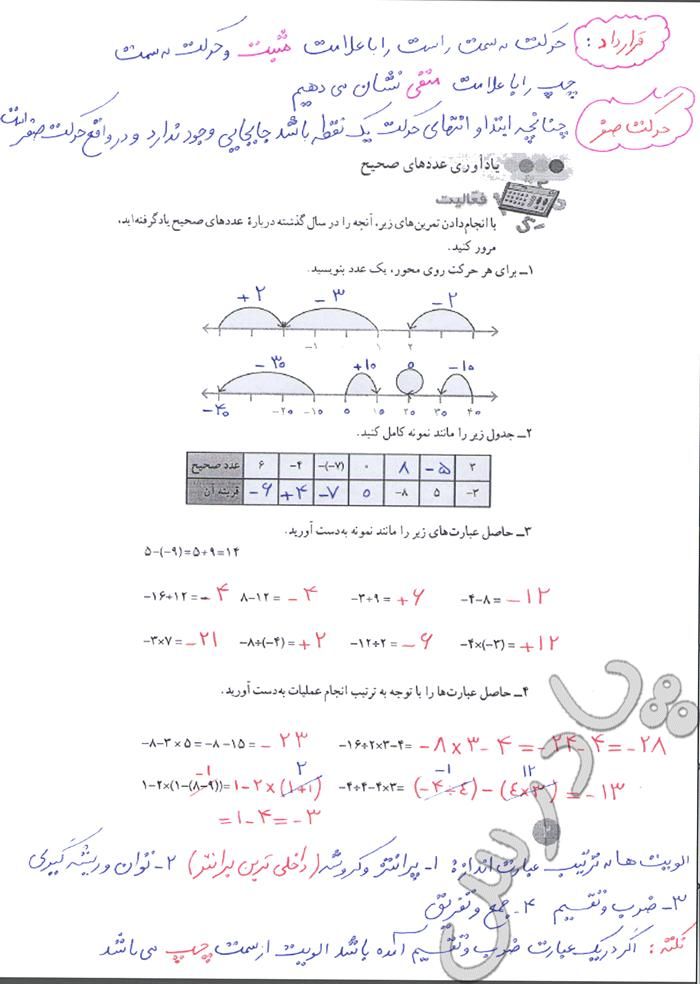 قرارداد : حرکت به سمت راست را با علامت مثبت و حرکت به سمت
چپ را با علامت منفی نشان می دهیم
حرکت صفر چنانچه ابتدا و انتهای حرکت یک نقطه باشد جابجایی وجود ندارد و در واقع حرکت صفر است
یادآوری عددهای صحیح
فعّالیت
با انجام‌دادن تمرین‌های زیر، آنچه را در سال گذشته دربارهٔ عددهای صحیح یادگرفته‌اید،
مرور کنید.
۱ــ برای هر حرکت روی محور، یک عدد بنویسید.
+۲ -۳ -۲
-۱ ۱ ۲
-۳۰ +۱۰ ۰ -۱۰
-۴۰ -۲۰ -۱۰ ۰ ۱۰ ۲۰ ۳۰ ۴۰
۲ــ جدول زیر را مانند نمونه کامل کنید.
عدد صحیح ۶ -۴ -(-۷) ۰ ۸ -۵ ۲
قرینه آن -۶ +۴ -۷ ۰ -۸ ۵ -۲
۳ــ حاصل عبارت‌های زیر را مانند نمونه به‌دست آورید.
۵-(-۹)=۵+۹=۱۴
-۱۶+۱۲=-۴ ۸-۱۲=-۴ -۳+۹=+۶ -۴-۸=-۱۲
-۳×۷=-۲۱ -۸÷(-۴)=+۲ -۱۲÷۲=-۶ -۴×(-۳)=+۱۲
۴ــ حاصل عبارت‌ها را با توجه به ترتیب انجام عملیات به‌دست آورید.
-۸-۳×۵=-۸-۱۵=-۲۳ -۱۶÷۲×۳-۴=-۸×۳-۴=-۲۴-۴=-۲۸
-۱ ۲ -۱ ۱۲
۱-۲×(۱-(۸-۹))=۱-۲×(۱+۱) -۴÷۴-۴×۳=(-۴÷۴)-(۴×۳)=-۱۳
=۱-۴=-۳
الویت ها به ترتیب عبارت اند از: ۱- پرانتز و کروشه (داخلی ترین پرانتز) ۲- توان و ریشه گیری
۳- ضرب و تقسیم ۴- جمع و تفریق
نکته : اگر در یک عبارت ضرب و تقسیم آمده باشد الویت از سمت چپ می باشد
پادرس